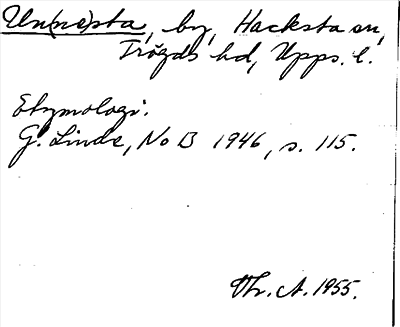 Un(ne)sta, by, Hacksta sn,
Trögds hd, Upps. l.
Etymologi.
G. Linde, No B 1946, s. 115.
Th. A. 1955.